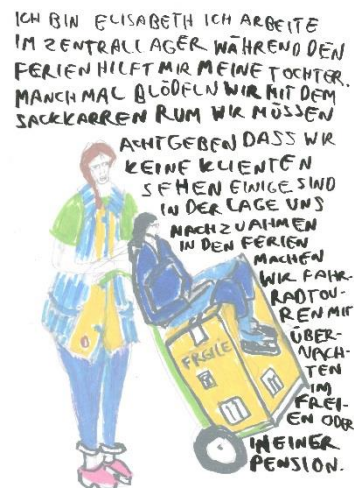 ICH BIN ELISABETH ICH ARBEITE
IM ZENTRALLAGER WÄHREND DEN
FERIEN HILFT MIR MEINE TOCHTER.
MANCHMAL BLÖDELN WIR MIT DEM
SACKKARREN RUM WIR MÜSSEN
ACHTGEBEN DASS WIR
KEINE KLIENTEN
SEHEN EINIGE SIND
IN DER LAGE UNS
NACHZUAHMEN
IN DEN FERIEN
MACHEN
WIR FAHR-
RADTOU-
REN MIT
ÜBER-
NACH-
TEN
IM
FREI-
EN ODER
IN EINER
PENSION.
FRGILE